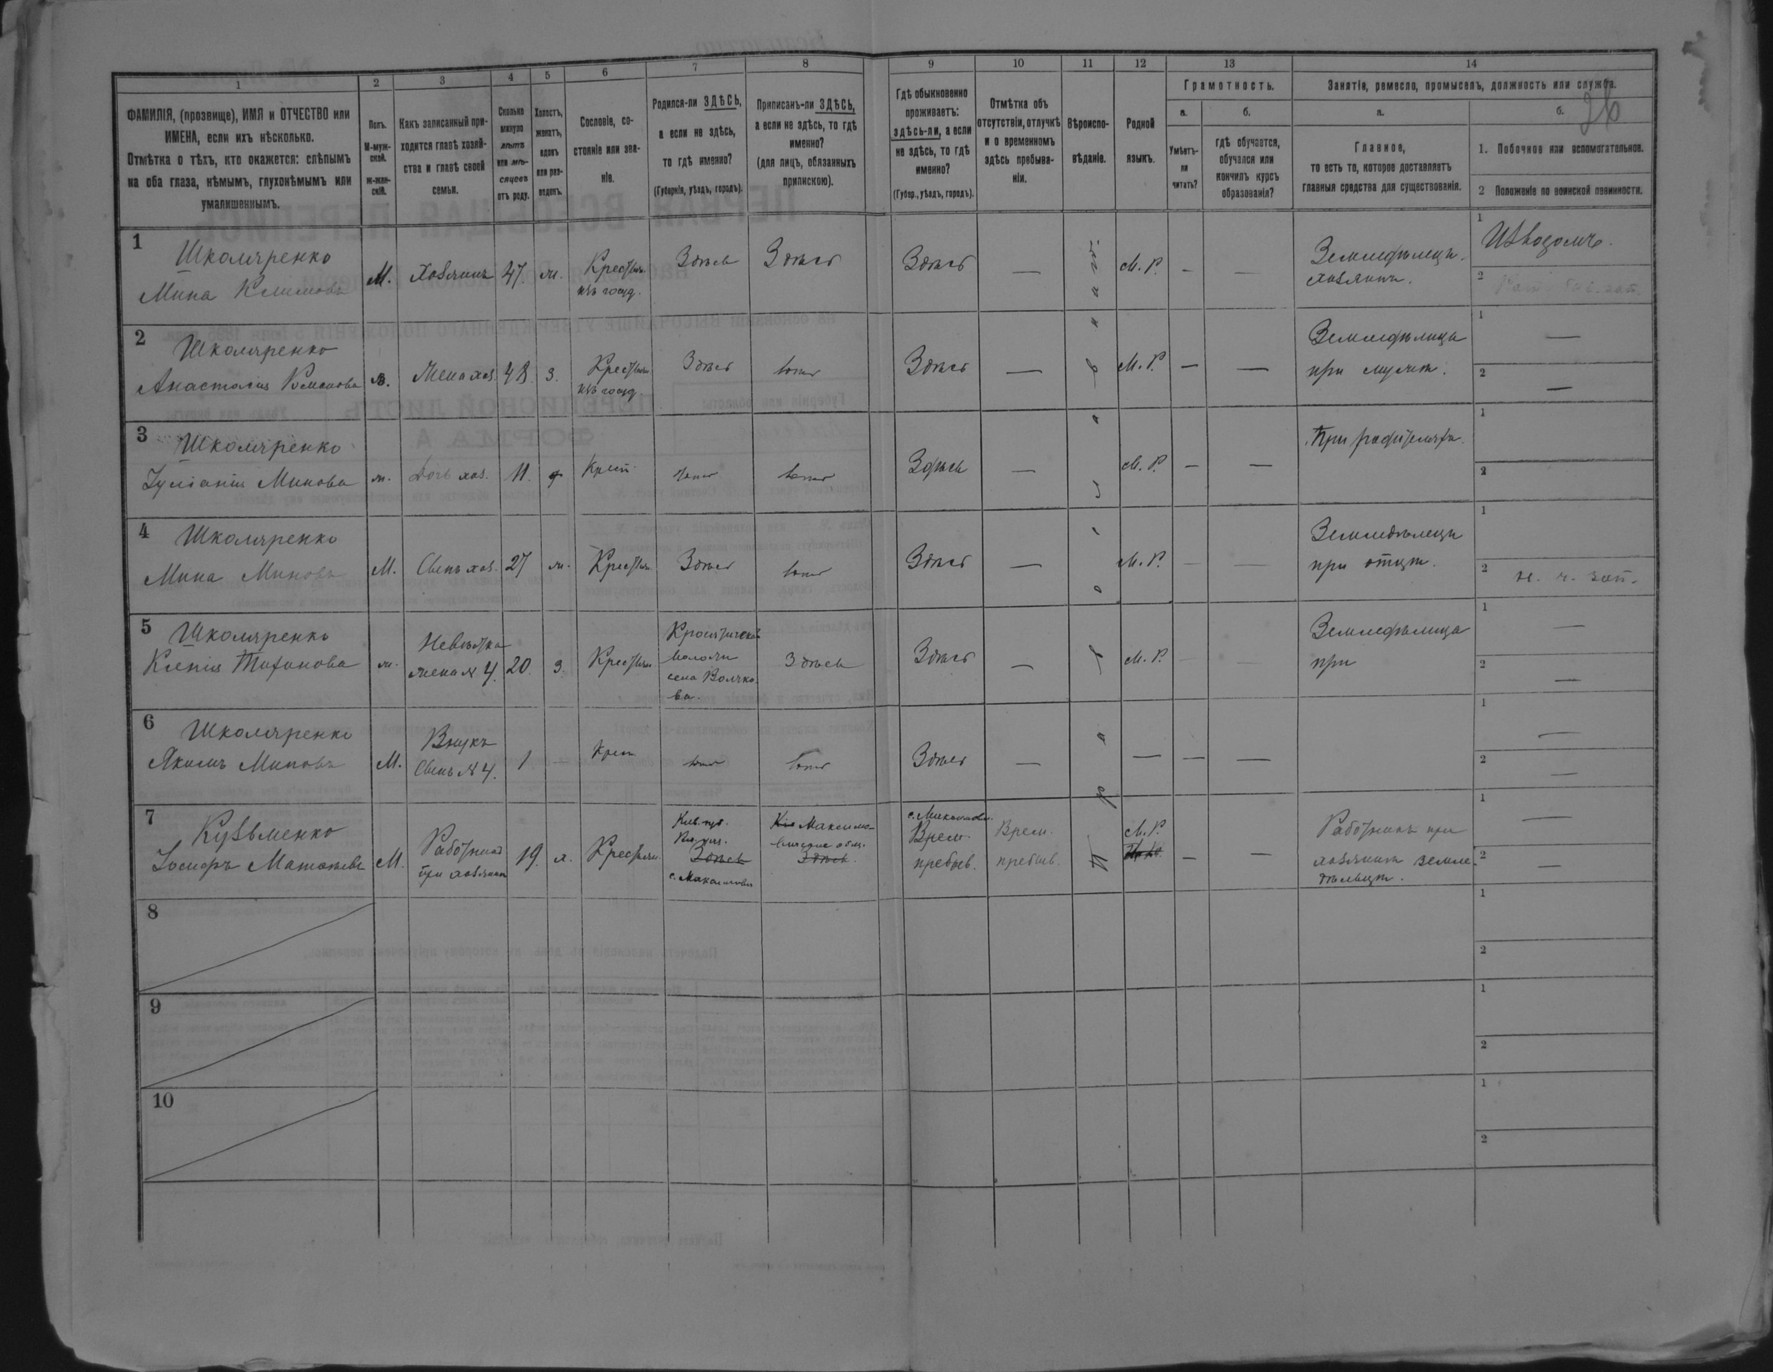 1 2 3 4 5 6 7 8 9 10 11 12 13 14
ФАМИЛІЯ, (прозвище), ИМЯ и ОТЧЕСТВО или
ИМЕНА, если ихъ нѣсколько.
Отмѣтка о тѣхъ, кто окажется: слѣпымъ
на оба глаза, нѣмымъ, глухонѣмымъ или
умалишеннымъ.
Полъ.
М-муж-
ской.
Ж-жен-
скій.
Какъ записанный при-
ходится главѣ хозяй-
ства и главѣ своей
семьи.
Сколько
минуло
лѣтъ
или мѣ-
сяцевъ
отъ роду.
Холостъ,
женатъ,
вдовъ
или раз-
веденъ.
Сословіе, со-
стояніе или зва-
ніе.
Родился-ли ЗДѢСЬ,
а если не здѣсь,
то гдѣ именно?
(Губернія, уѣздъ, городъ).
Приписанъ-ли ЗДѢСЬ,
а если не здѣсь, то гдѣ
именно?
(для лицъ, обязанныхъ
припискою).
Гдѣ обыкновенно
проживаетъ:
здѣсь-ли, а если
не здѣсь, то гдѣ
именно?
(Губер., уѣздъ, городъ).
Отмѣтка объ
отсутствіи, отлучкѣ
и о временномъ
здѣсь пребыва-
ніи.
Вѣроиспо-
вѣданіе.
Родной
языкъ.
Грамотность.
а.
Умѣетъ-
ли
читать?
б.
гдѣ обучается,
обучался или
кончилъ курсъ
образованія?
Занятіе, ремесло, промыселъ, должность или служба.
а.
Главное,
то есть то, которое доставляетъ
главныя средства для существованія.
б.
26
1. Побочное или вспомогательное.
2 Положеніе по воинской повинности.
1
Школяренко
Мина Климовъ
М. Хозяинъ 47 ж. Крестьян.
изъ госуд.
Здѣсь Здѣсь Здѣсь — М. Р. — —
Земледѣлецъ
хозяинъ.
1 Извозомъ.
2
2
Школяренко
Анастасія Романова
ж. Жена хоз. 48 з. Крестьян
изъ госуд
Здѣсь тоже Здѣсь — М. Р. — —
Земледѣлица
при мужѣ.
1 —
2 —
3
Школяренко
Іуліанія Минова
ж. Дочь хоз. 11. Крест. тоже тоже Здѣсь — М. Р. — —
При родителяхъ.
1
2
4
Школяренко
Мина Миновъ
М. Сынъ хоз. 27 ж. Крестьян Здѣсь тоже Здѣсь — М. Р. — —
Земледѣлецъ
при отцѣ.
1
2
5
Школяренко
Ксенія Тихонова
ж. Невѣстка
жена № 4. 20 з. Крестьян
села Волчко
ва.
Здѣсь Здѣсь — М. Р. — —
Земледѣлица
при
1 —
2 —
6
Школяренко
Якимъ Миновъ
М. Внукъ
Сынъ № 4. 1 — Крест тоже тоже Здѣсь — — — —
1 —
2 —
7
Кузьменко
Іосифъ Матвѣевъ
М. Работникъ
при хозяинѣ
19. х. Крестьян.
Кіев. губ.
Здѣсь
с. Максимовки
Здѣсь.
с. Максимовки
Врем.
пребыв.
Врем.
пребыв.
М. Р. — —
Работникъ при
хозяинѣ земле-
дѣльцѣ.
1 —
2 —
Православ.
8
1
2
9
1
2
10
1
2